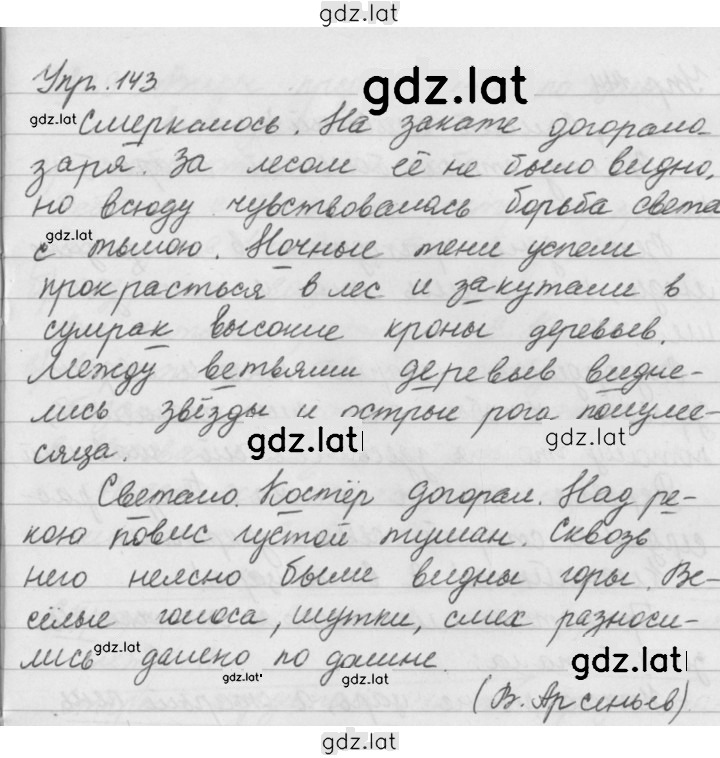 gdz.lat
Упр. 143
gdz.lat
gdz.lat Смеркалось. На закате догорала
заря. За лесом её не было видно,
но всюду чувствовалась борьба света
gdz.lat
с тьмою. Ночные тени успели
прокрасться в лес и закутали в
сумрак высокие кроны деревьев.
Между ветвями деревьев видне-
лись звёзды и острые рога полуме-
сяца.
gdz.lat
gdz.lat
Светало. Костёр догорал. Над ре-
кою повис густой туман. Сквозь
него неясно были видны горы. Ве-
сёлые голоса, шутки, смех разноси-
лись gdz.lat далеко по долине.
gdz.lat
gdz.lat
gdz.lat
(В. Арсеньев)
gdz.lat